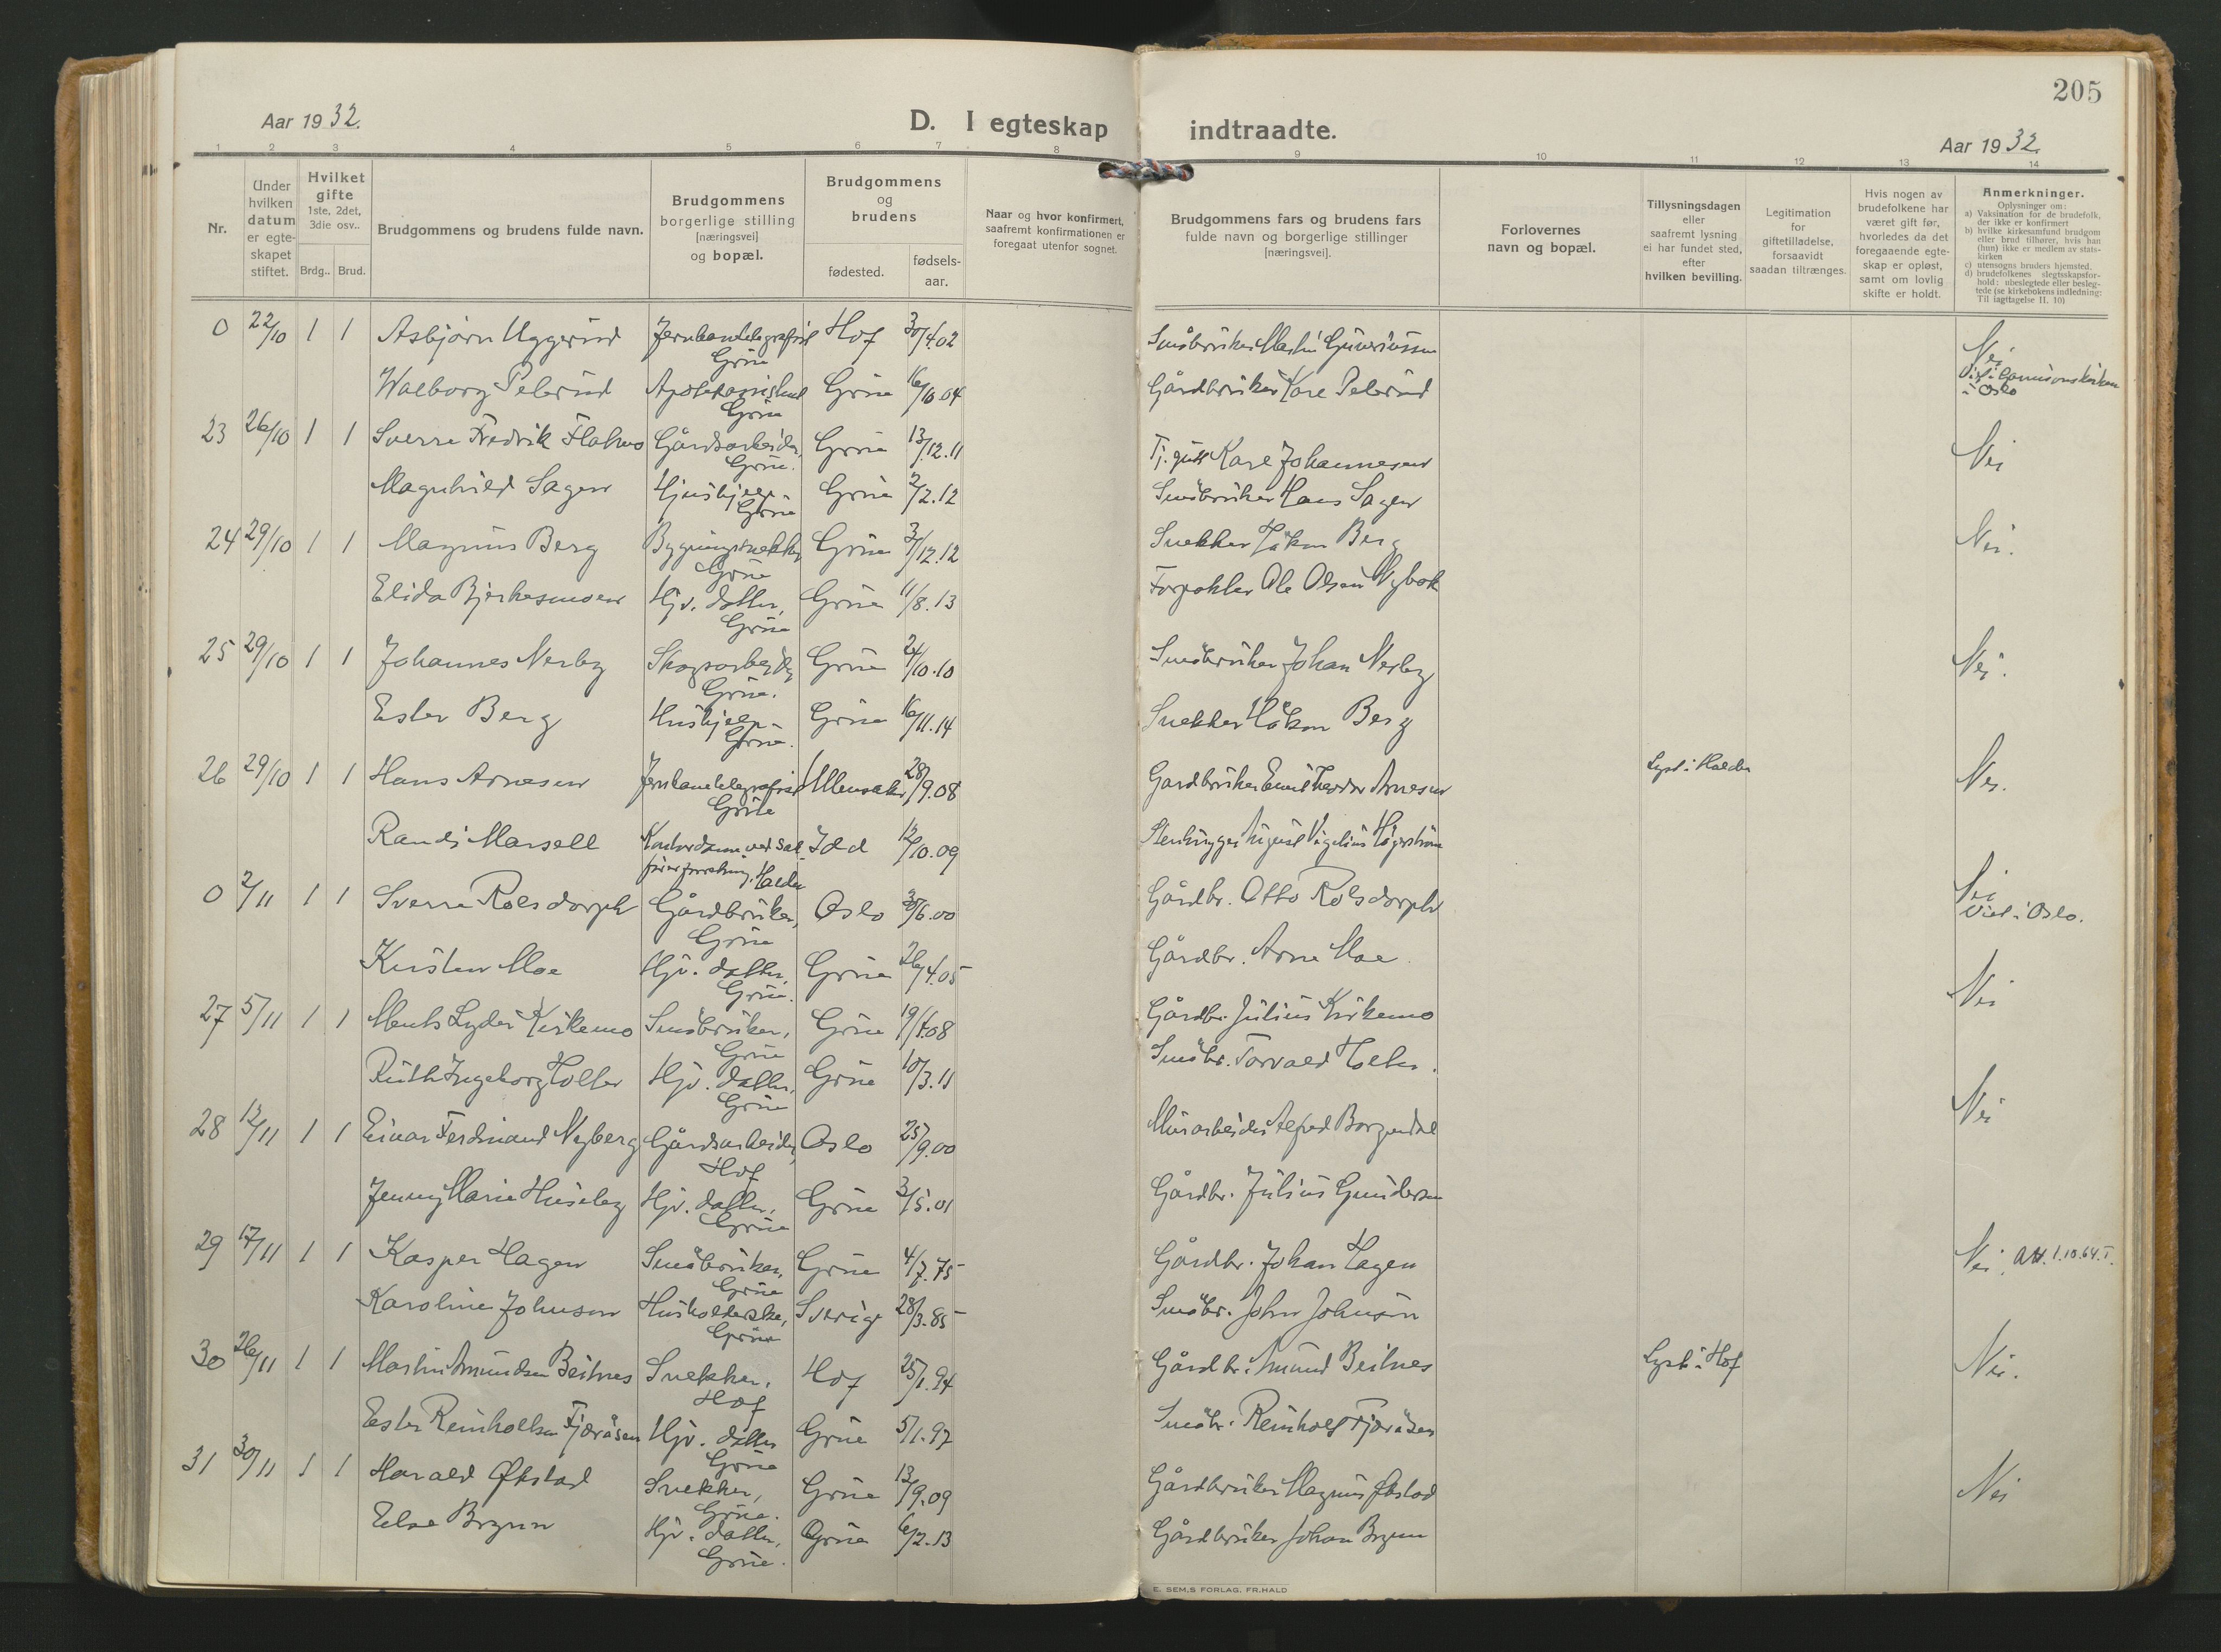 205
Aar 1932.
D. I egteskap indtraadte.
Aar 1932.
1 2 3 4 5 6 7 8 9 10 11 12 13 14
Nr.
Under hvilken datum er egteskapet stiftet.
Hvilket gifte
1ste, 2det, 3die osv..
Brdg.. Brud.
Brudgommens og brudens fulde navn.
Brudgommens borgerlige stilling [næringsvei] og bopæl.
Brudgommens og brudens
fødested.
fødsels-aar.
Naar og hvor konfirmert, saafremt konfirmationen er foregaat utenfor sognet.
Brudgommens fars og brudens fars fulde navn og borgerlige stillinger [næringsvei].
Forlovernes navn og bopæl.
Tillysningsdagen eller saafremt lysning ei har fundet sted, efter hvilken bevilling.
Legitimation for giftetilladelse, forsaavidt saadan tiltrænges.
Hvis nogen av brudefolkene har været gift før, hvorledes da det foregaaende egteskap er opløst, samt om lovlig skifte er holdt.
Anmerkninger.
Oplysninger om:
a) Vaksination for de brudefolk, der ikke er konfirmert
b) hvilke kirkesamfund brudgom eller brud tilhører, hvis han (hun) ikke er medlem av statskirken
c) utensogns bruders hjemsted.
d) brudefolkenes slegtsskapsforhold: ubeslegtede eller beslegtede (se kirkebokens indledning: Til iagttagelse II. 10)
0 22/10 1 1 Asbjørn Uggerud Jernbanetelegrafist Grue Hof 30/4.02 Småbruker Martin Guneriussen Nei
Walborg Pelerud Grue Grue 16/10 04 Gårdbruker Kare Pelerud i Oslo
23 26/10 1 1 Sverre Fredrik Flatmo Gårdsarbeider, Grue. Grue 13/12.11 Karl Johannesen Nei
Magnhild Sagen Hushjelp - Grue Grue 2/2.12 Småbruker Hans Sagen
24 29/10 1 1 Magnus Berg Bygningssnekker Grue Grue 3/12.12 Snekker Håkon Berg Nei.
Elida Bjerkesmoen Hjv. datter, Grue Grue 11/8.13 Forpakter Ole Olsen Nybak
25 29/10 1 1 Johannes Nerby Skogsarbeider Grue. Grue 24/10.10 Småbruker Johan Nerby Nei.
Ester Berg Hushjelp - Grue. Grue 16/11.14 Snekker Håkon Berg
26 29/10 1 1 Hans Arnesen Jernbanetelegrafist Grue Ullensaker 28/9.08 Gardbruker Emil Theodor Arnesen Lyst i Halden Nei.
Randi Marsell Kontordame ved Halden Idd 12/10.09 Stenhugger August Vigelius Hägerström
0 2/11 1 1 Sverre Rolsdorph Gårdbruker, Grue Oslo 30/6.00 Gårdbr. Otto Rolsdorph Nei Viet i Oslo.
Kirsten Moe Hjv. datter, Grue. Grue 26/4.05 Gårdbr. Arne Moe
27 5/11 1 1 Kirkemo Småbruker, Grue Grue 19/1.08 Gårdbr. Julius Kirkemo Nei
Ruth Ingeborg Holter Hjv. datter, Grue Grue 10/3.11 Småbr. Torvald Holter.
28 12/11 1 1 Einar Ferdinand Nyberg Gårdsarbeider, Hof Oslo 25/9.00 Murarbeider Alfred Borgendal Nei
Jenny Marie Huseby Hjv. datter, Grue Grue 3/5.01 Gårdbr. Julius Gundersen
29 17/11 1 1 Kasper Hagen Småbruker, Grue Grue 4/7.75 Gårdbr. Johan Hagen Nei. Att. 1.10.64.T.
Karoline Johnson Husholderske, Grue Sverige 28/3.85 Småbr. John Johnson
30 26/11 1 1 Martin Amundsen Beitnes Snekker, Hof Hof 25/1.94 Gårdbr. Amund Beitnes Lyst i Hof Nei.
Ester Reinholtsen Fjøråsen Hjv. datter Grue Grue 5/1.97 Småbr. Reinholt Fjøråsen
31 30/11 1 1 Harald Økstad Snekker, Grue. Grue 13/9.09 Gårdbruker Magnus Økstad Nei
Else Brynn Hjv. datter, Grue. Grue 6/2.13 Gårdbruker Johan Brynn
E. SEM,S FORLAG, FR.HALD